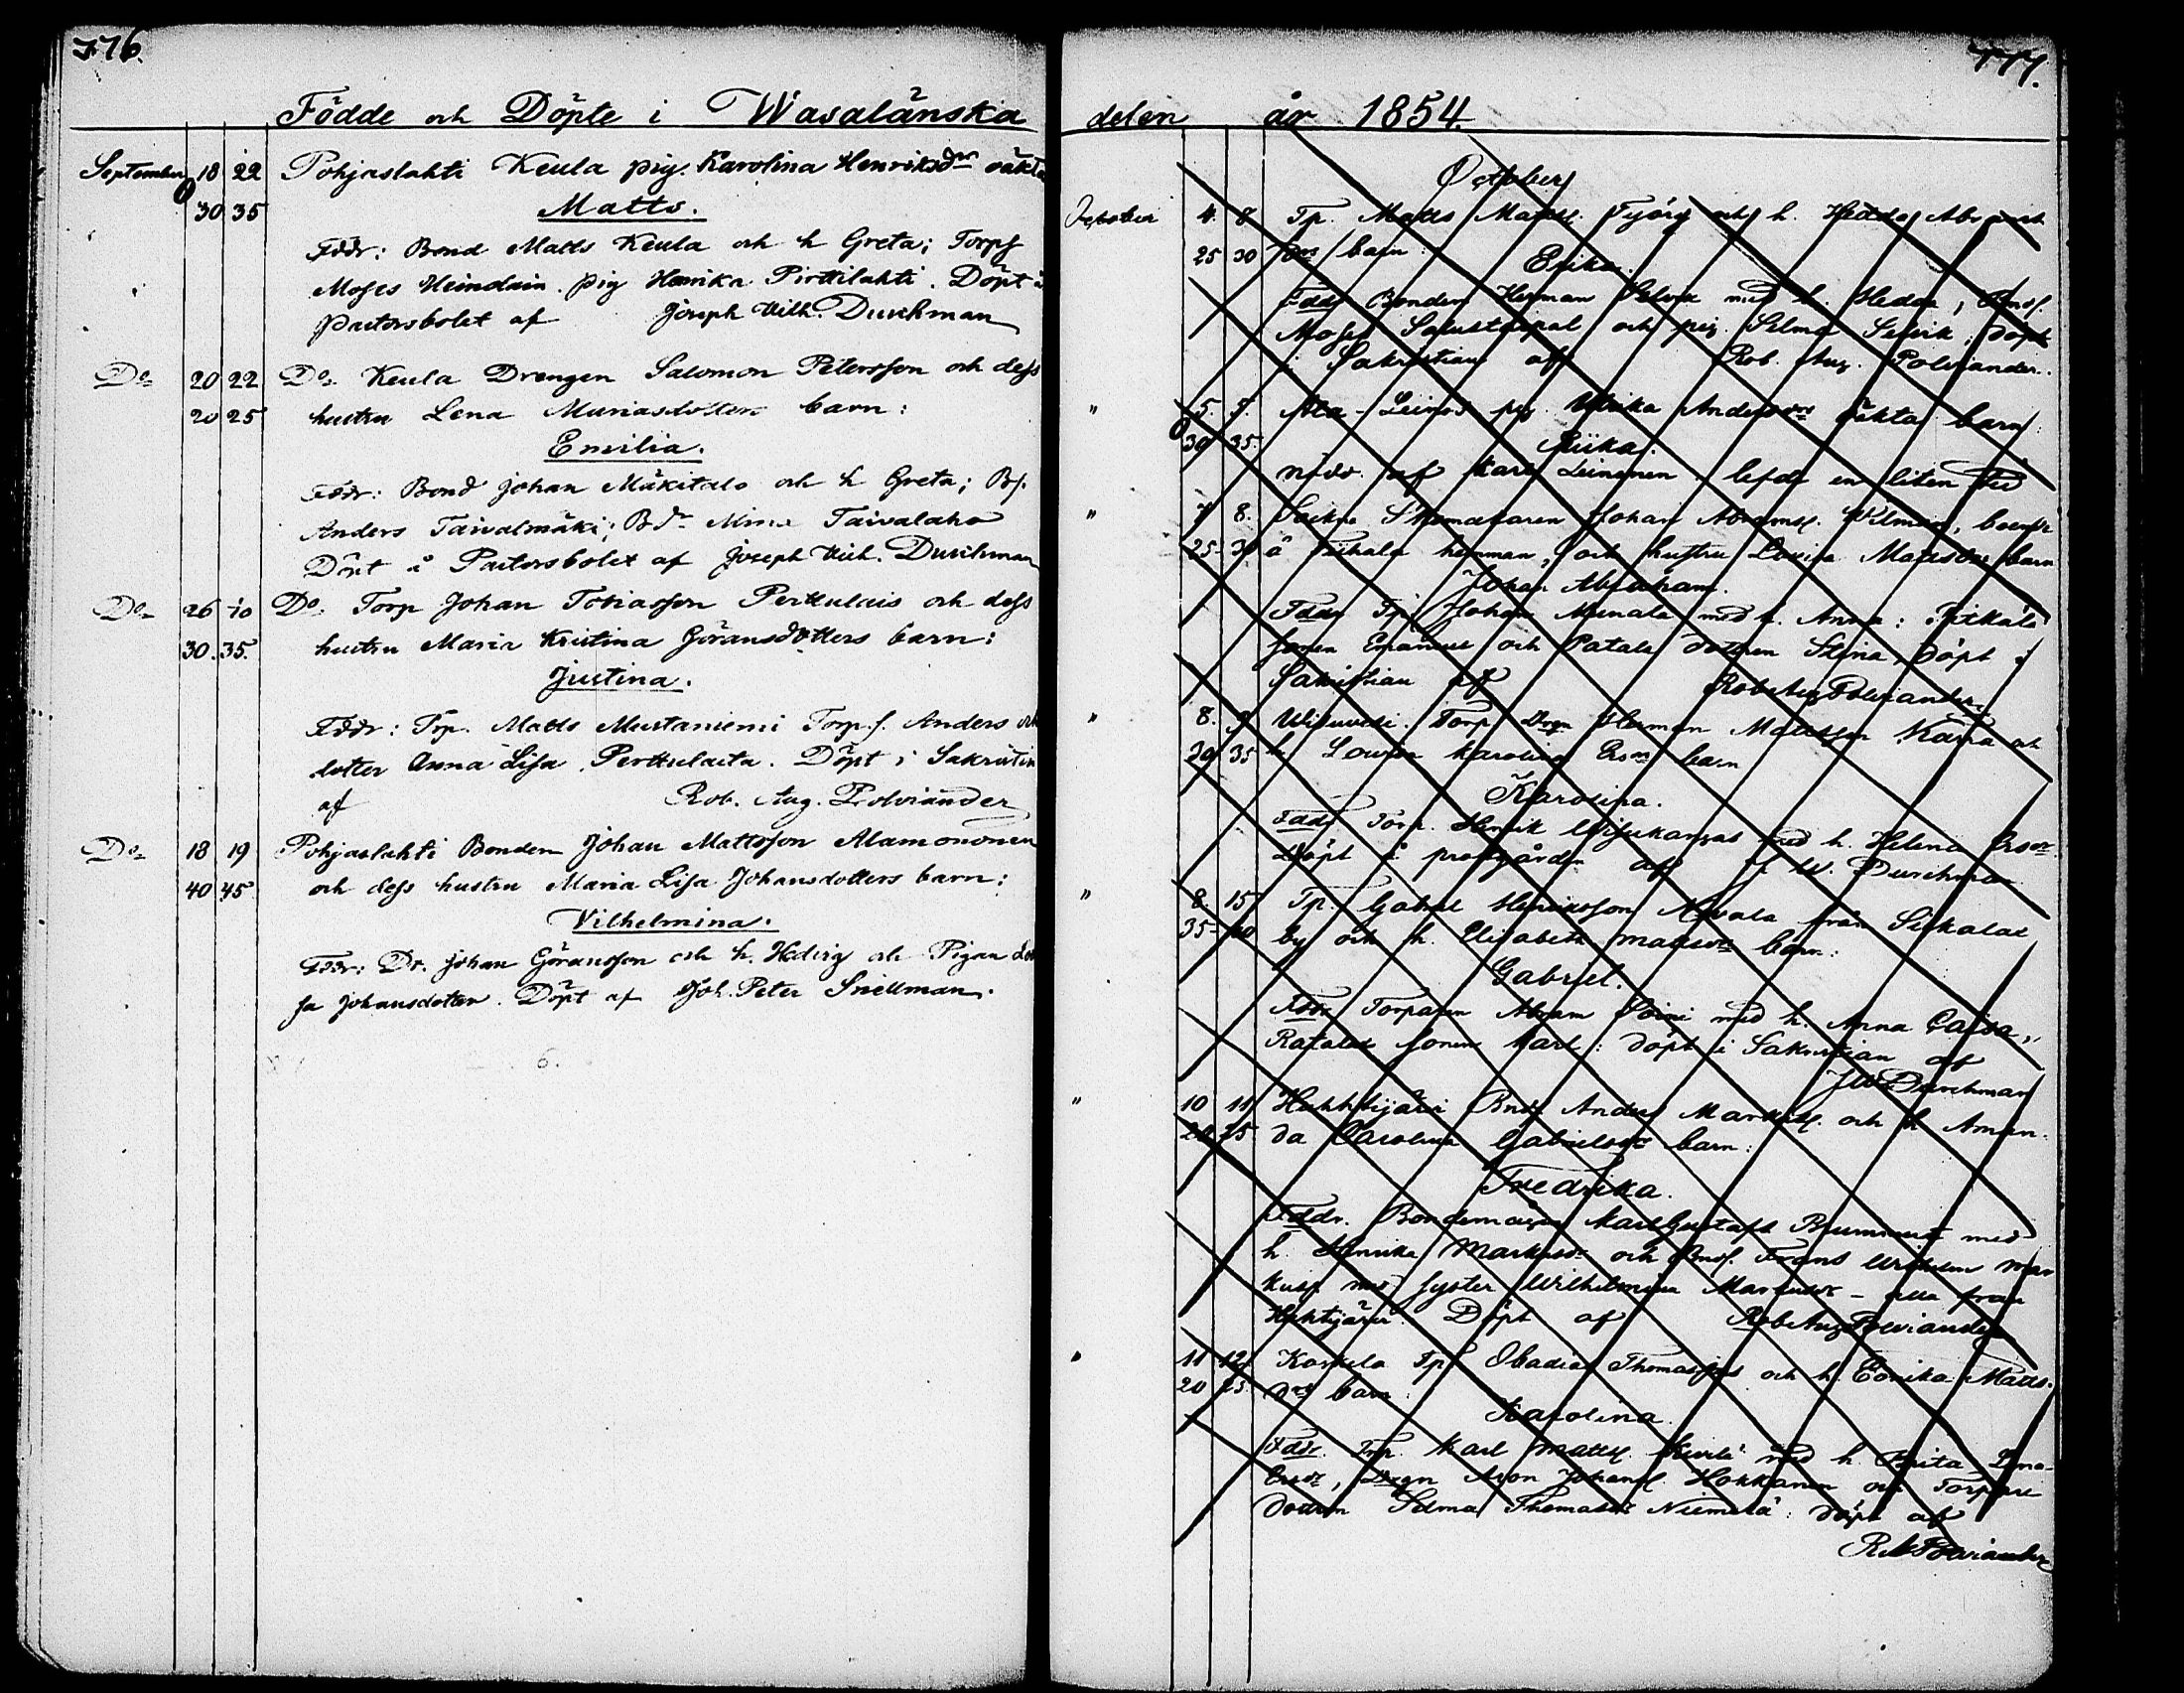 776.
Födde och Döpte i Wasalänska
September 18 22 Pohjaslahti Keula pig. Karolina Henriksdr oäkta
30 35 Matts.
Fddr: Bond Matts Keula och h Greta; Torps
Moses Heindain. pig Henrika Pirttilahti. Döpt å
Pastorsbolet af Joseph Vilh. Durchman
Do 20 22 Do Keula Drengen Salomon Petersson och dess
20 25 hustru Lena Mariasdotters barn:
Emilia.
Fddr: Bond Johan Mäkitalo och h Greta; Bs.
Anders Taivalmäki; Bdr Mina Taivalaho
Döpt å Pastorsbolet af Joseph Vilh. Durchman
Do 26 10 Do. Torp Johan Tobiasson Perttulais och dess
30. 35. hustru Maria Kristina Göransdotters barn:
Justina.
Fddr: Trp. Matts Mustaniemi Torp.s. Anders och
dotter Anna Lisa Perttulasta. Döpt i Sakristin
af Rob. Aug. Polviander
Do 18 19 Pohjaslahti Bonden Johan Mattsson Alamononen
40 45 och dess hustru Maria Lisa Johansdotters barn:
Vilhelmina.
Fddr: Dr. Johan Göransson och h. Hedvig och Pigan Lo
sa Johansdotter. Döpt af Joh. Peter Snellman.
6.
777.
delen år 1854.
October
October 4. 8 Tp. Matts Matts. och h. Hedda
25 30 drs barn:
Erika.
Fddr Bonden Herman med h. Hedda, Bnds.
Moses och pig. Selma döpt
i Sakristian af Rob. Aug. Polviander.
" 5. 7. Ala-Leinos pig Ulrika Andersdrs oäkta barn:
30 35. Riika.
nöddr. af Karl Leinonen. lefde en liten tid
" 7 8. Socknе Skomakaren Johan Abramss. boende
25- 30 å hemman, och hustru Lovisa Mattsdrs barn
Johan Abraham.
Fddr Tp. Johan med h. Anna:
sonen Emanuel och dottren Stina, döpt i
Sakristian af Rob Aug Polviander
" 8. 9 Torp Drgn Herman Mattsson och
30 35 h Lovisa Karolina Ersdrs barn
Karolina.
Fddr Torp. Henrik med h. Helena Ersdr.
Döpt å prostgården af J. W. Durchman
" 8. 15 Tp. Gabriel Henriksson från
35- 40 by och h. Elisabeth Mattsdrs barn:
Gabriel.
Fddr Torparen Abram Soini med h. Anna Cajsa,
sonen Karl: döpt i Sakristian af
JW Durchman
" 10 11 Huhtijärvi Bnd. Anders Markuss. och h Aman-
20 25 da Carolina Gabrielsdrs barn:
Fredrika.
Fddr. Bondemågen Karl Gustaf med
h. Henrika Markusdr och Bnds. Frans Wilhelm Mar
kuss. med syster Wilhelmina Markusdr - alla från
Huhtijärvi. Döpt af Rob Aug Polviander
" 11 12. Koskela Tp. Obadias Thomasson och h. Eörika Matts-
20 25. drs barn:
Karolina.
Fddr. Trp. Karl Matts. med h. Brita Lena
Ersdr, Drgn Aron Johans. Hokkanen och Torpare
dottren Selma Thomasdr Niemelä: döpt af
RA Polviander